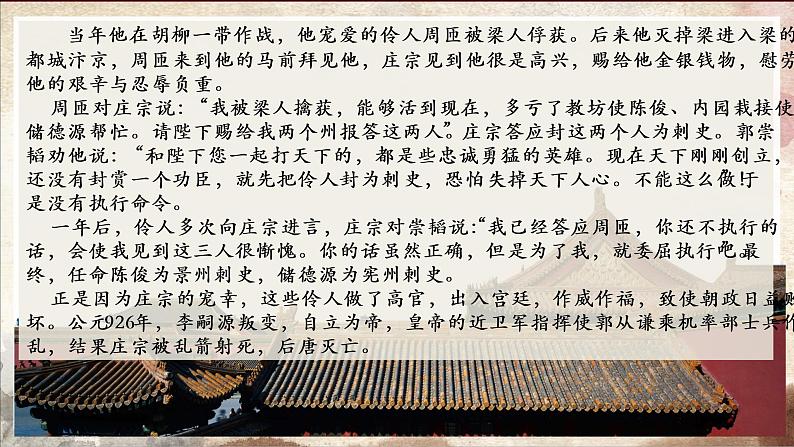 当年他在胡柳一带作战，他宠爱的伶人周匝被梁人俘获。后来他灭掉梁进入梁的
都城汴京，周匝来到他的马前拜见他，庄宗见到他很是高兴，赐给他金银钱物，慰劳
他的艰辛与忍辱负重。
周匝对庄宗说：“我被梁人擒获，能够活到现在，多亏了教坊使陈俊、内园栽接使
储德源帮忙。请陛下赐给我两个州报答这两人”。庄宗答应封这两个人为刺史。郭崇
韬劝他说：“和陛下您一起打天下的，都是些忠诚勇猛的英雄。现在天下刚刚创立，
还没有封赏一个功臣，就先把伶人封为刺史，恐怕失掉天下人心。不能这么做！”于
是没有执行命令。
一年后，伶人多次向庄宗进言，庄宗对崇韬说：“我已经答应周匝，你还不执行的
话，会使我见到这三人很惭愧。你的话虽然正确，但是为了我，就委屈执行吧”。最
终，任命陈俊为景州刺史，储德源为宪州刺史。
正是因为庄宗的宠幸，这些伶人做了高官，出入宫廷，作威作福，致使朝政日益败
坏。公元926年，李嗣源叛变，自立为帝，皇帝的近卫军指挥使郭从谦乘机率部士兵作
乱，结果庄宗被乱箭射死，后唐灭亡。